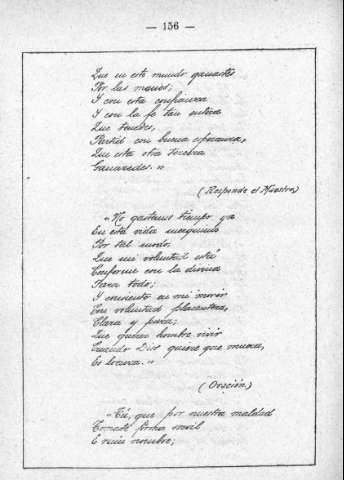 — 156 —
Que en este mundo ganastes
Por las manos;
Y con esta confianza
Y con la fe tan entera
Que tenedes,
Partid con buena esperanza,
Que esta otra tercera
Ganaredes.»
(Responde el Maestre)
«No gastemos tiempo ya
En esta vida mezquina
Por tal modo,
Que mi voluntad está
Conforme con la divina
Para todo;
Y consiento en mi morir
Con voluntad placentera,
Clara y pura;
Que querer hombre vivir
Cuando Dios quiere que muera,
Es locura.»
(Oración)
«Tú, que por nuestra maldad
Tomaste forma servil
E nombre;